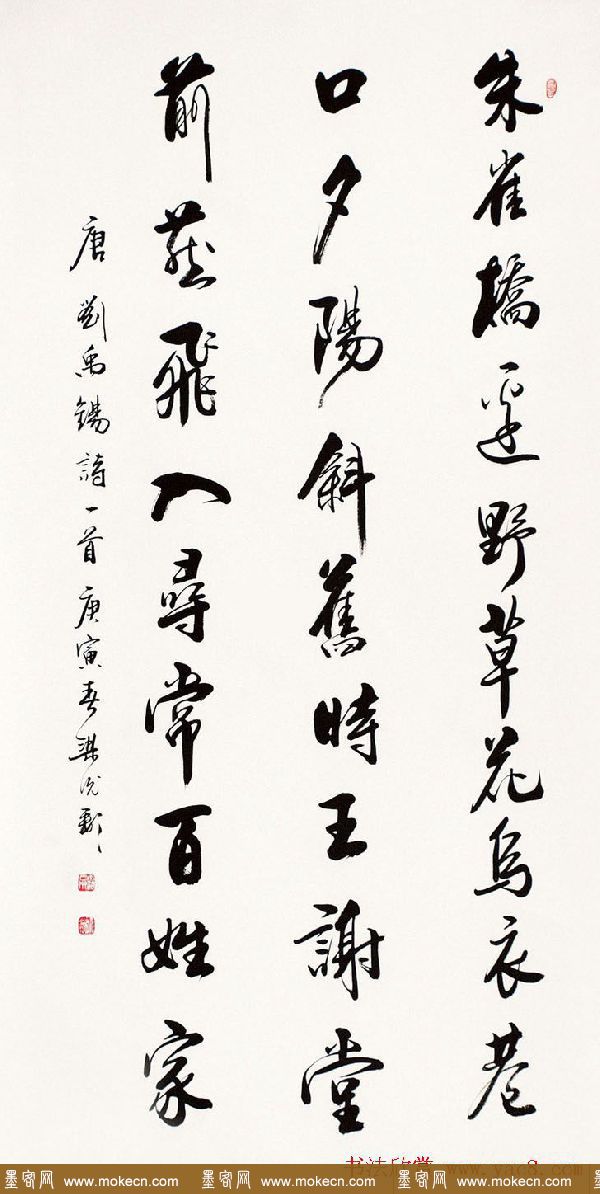 朱雀橋邊野草花烏衣巷
口夕陽斜舊時王謝堂
前燕飛入尋常百姓家
唐劉禹錫詩一首庚寅春
书法欣赏 www.yac8.com
墨客网 www.mokecn.com 墨客网 www.mokecn.com 墨客网 www.mokecn.com